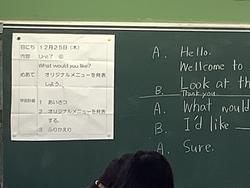 日にち 12月25日(木)
内容 Unit 7 ⑥
What would you like?
めあて オリジナルメニューを発表
しよう。
学習計画 1 あいさつ
2 オリジナルメニューを発表
する。
3 ふりかえり
A. Hello.
Wellcome to
Look at th
B. Thank you
A. What would
B. I'd like
A. Sure.